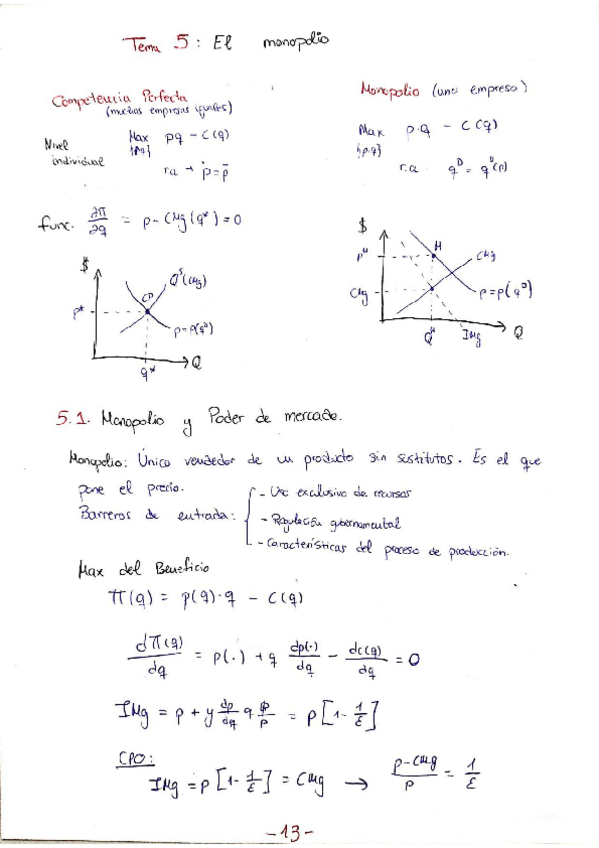 Tema 5: El monopolio
Competencia Perfecta
(muchas empresas iguales)
Nivel individual
Max pq - C(q)
{p,q}
r.a → p = p̄
func. ∂π/∂q = p - CMg(q*) = 0
$
Q^S(CMg)
CP
p*
p=p(q^D)
q*
Q
Monopolio (una empresa)
Max p·q - C(q)
{p,q}
r.a. q^D = q^D(p)
$
p^M
M
CMg
CMg
p=p(q^D)
Q^M
IMg
Q
5.1. Monopolio y Poder de mercado.
Monopolio: Único vendedor de un producto sin sustitutos. Es el que
pone el precio.
Barreros de entrada:
- Uso exclusivo de recursos
- Regulación gubernamental
- Características del proceso de producción.
Max del Beneficio
π(q) = p(q)·q - C(q)
dπ(q)/dq = p(.) + q dp(.)/dq - dc(q)/dq = 0
IMg = p + y dp/dq q p/p = p[1 - 1/ε]
CPO:
IMg = p[1 - 1/ε] = CMg → (p - CMg)/p = 1/ε
-13-